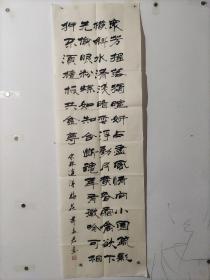 眾芳摇落獨暄妍占盡風情向小園疏影
横斜水清淺暗香浮動月黄昏霜禽欲下
先偷眼粉蝶如知合斷魂幸有微吟可相
狎不須檀板共金尊
宋林逋詩梅花